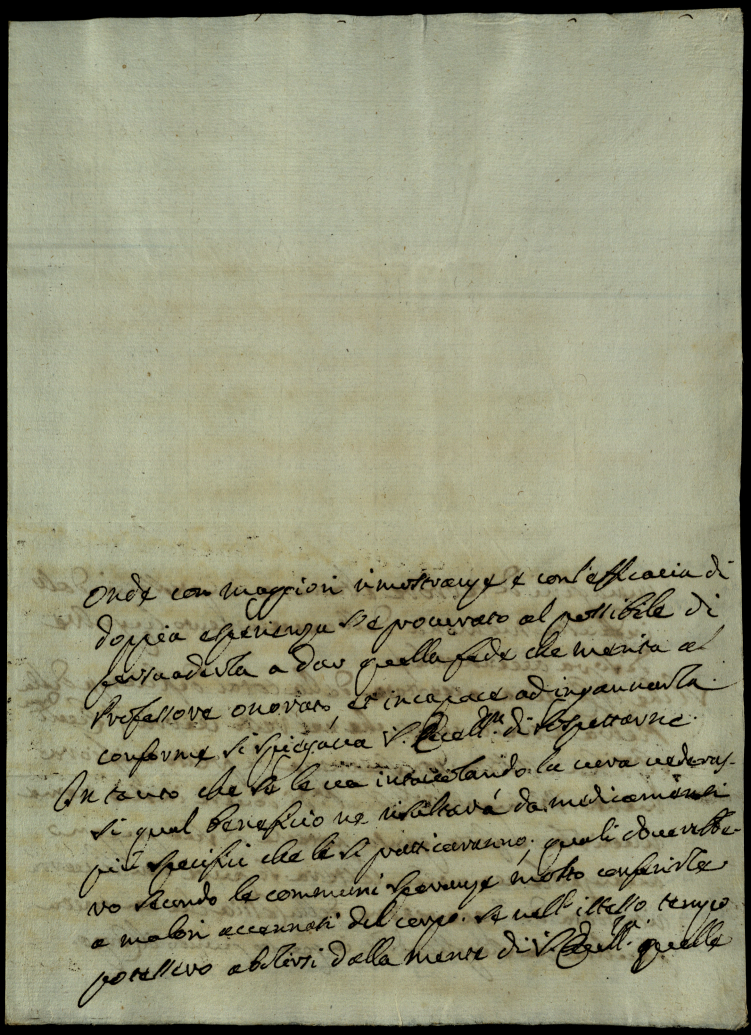 Onde con maggiori rimostranze e con l'efficacia di
doppia esperienza si è procurato al possibile di
persuaderla a dar quella fede che merita al
Professore onorato, et incapace ad ingannarla.
conforme si spiegava V. Eccell. di sospettarne.
In tanto che se le va intavolando la cura vedras-
si qual beneficio ne risultarà da medicamenti
più specifici che le si pratticaranno. quali doverebbe-
ro secondo le communi speranze molto conferirle
a malori accennati del corpo. se nell' istesso tempo
potessero abolirsi dalla mente di V. Eccell. quelle